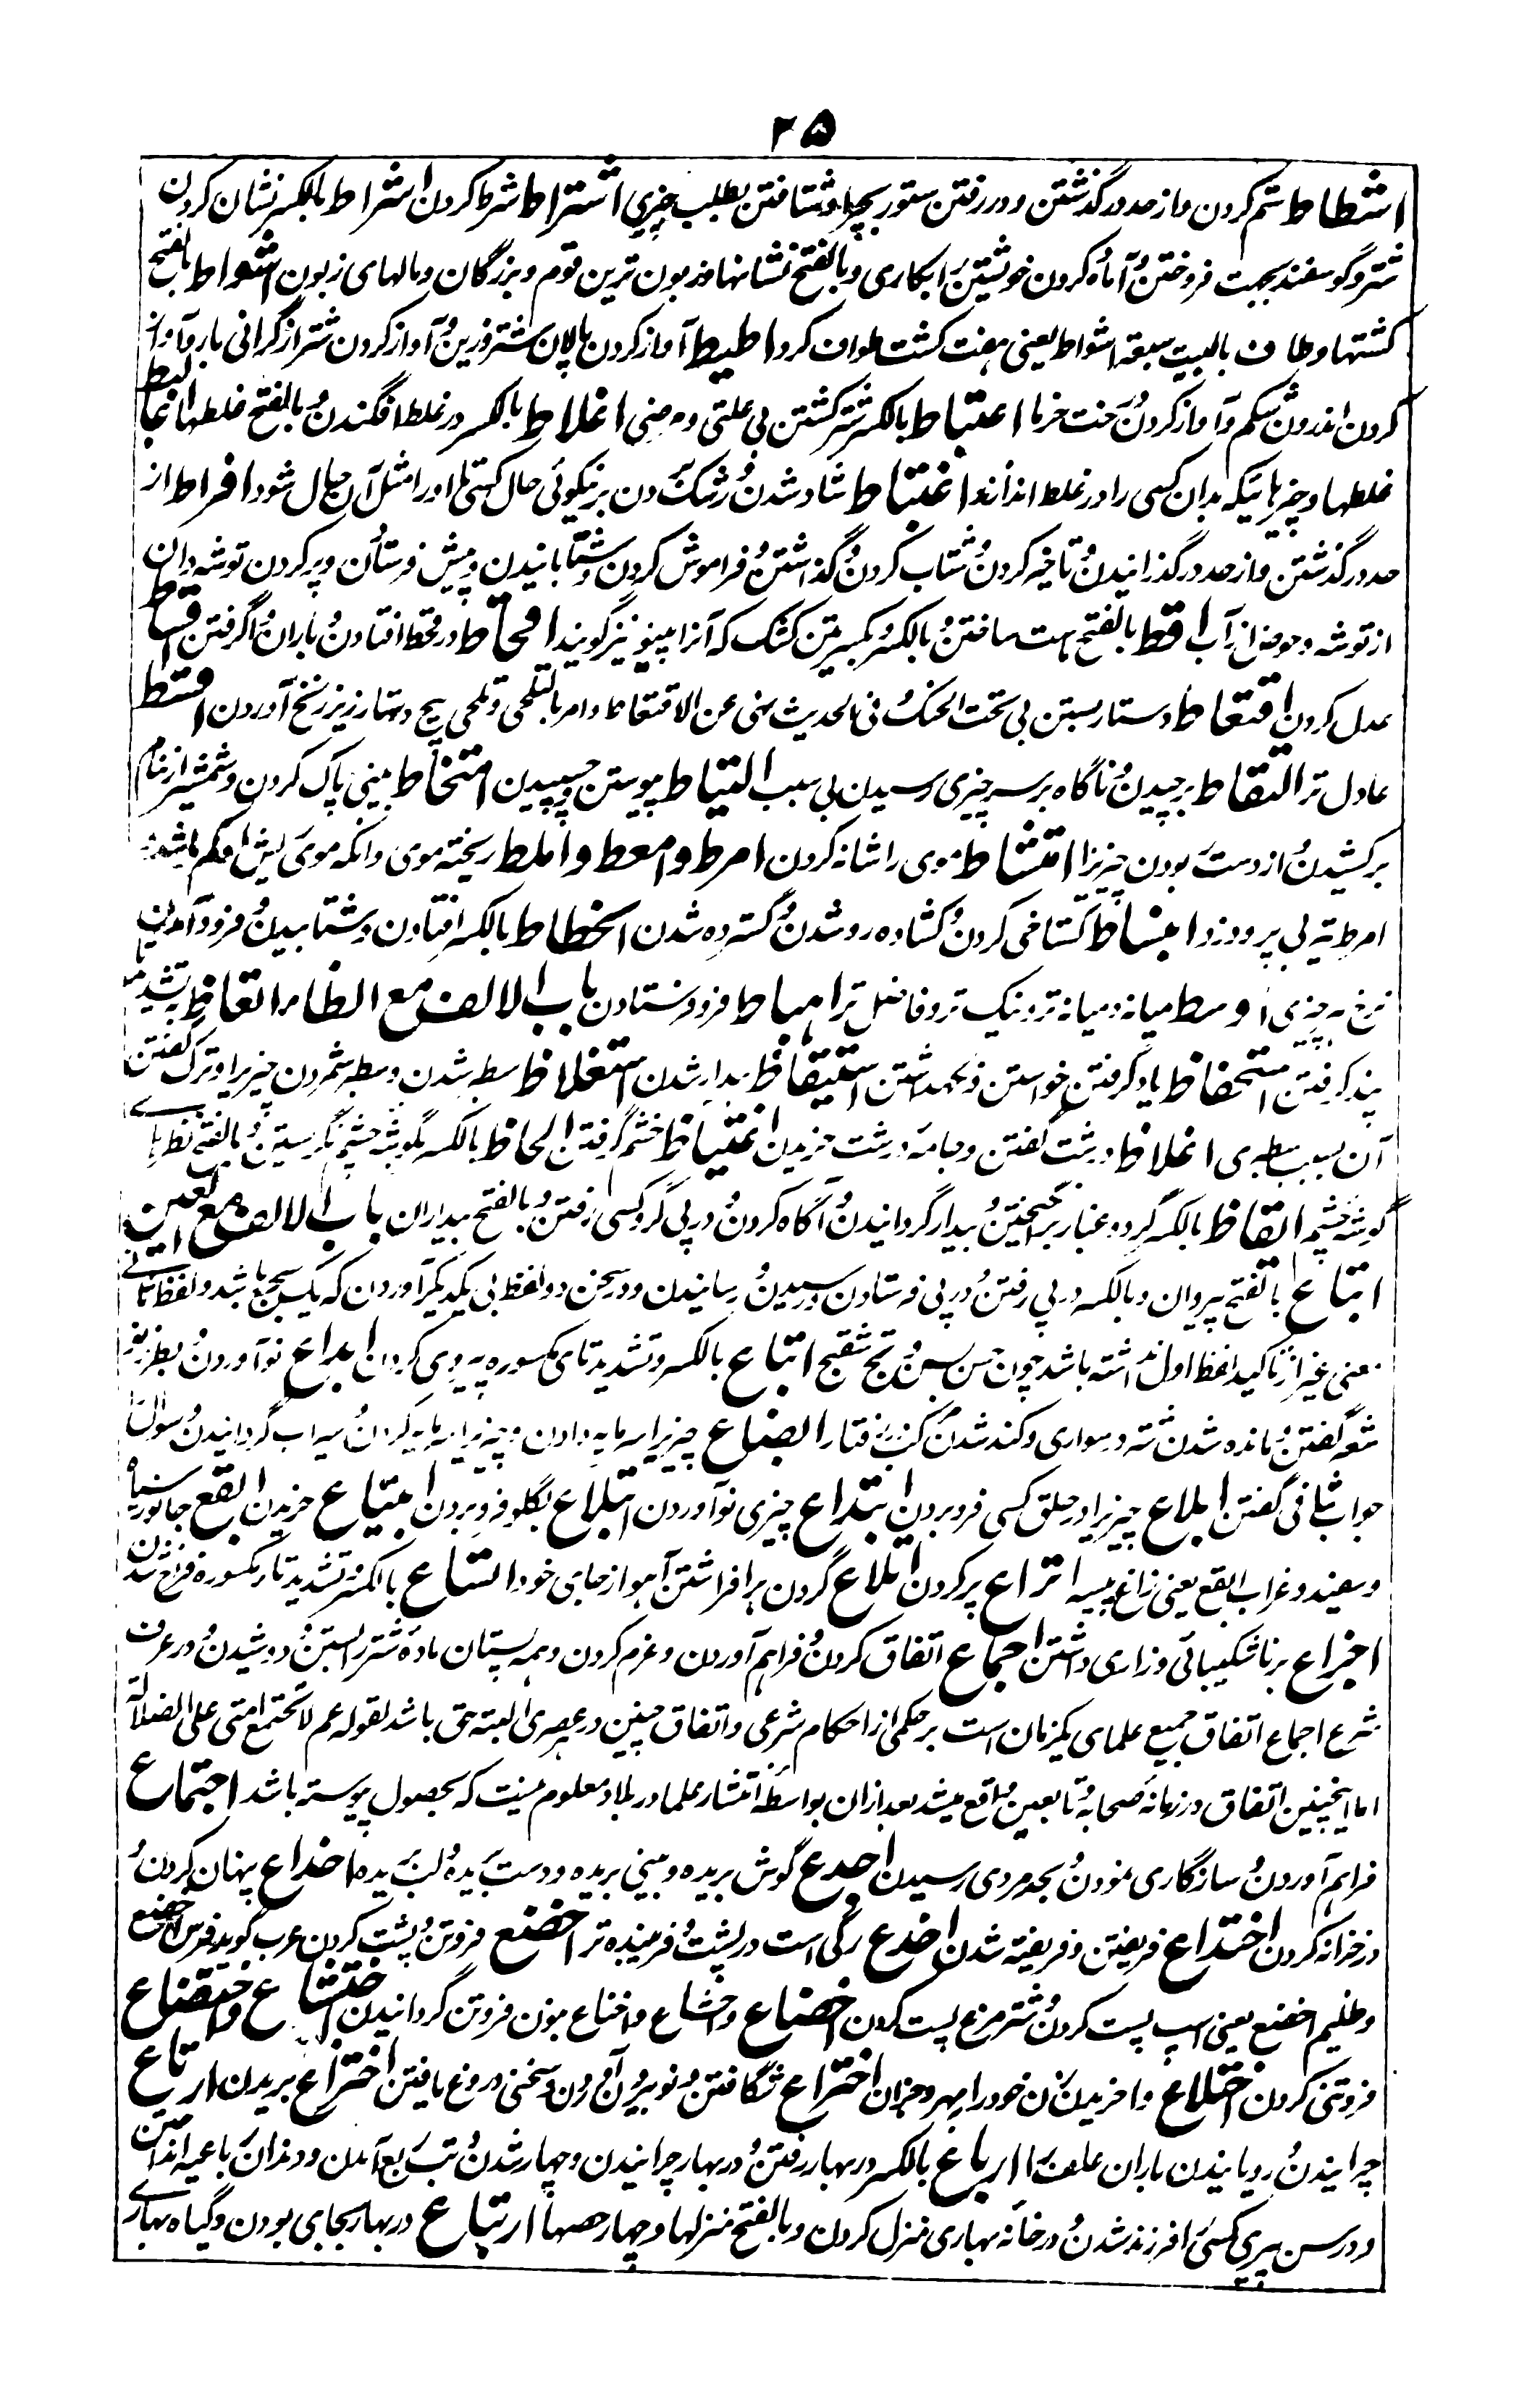 ۲۵
اشطاط ستم کردن و از حد در گذشتن و دور رفتن ستور بچرا و شتافتن بطلب چیزی اشتراط شرط کردن اشراط بالکسر نشان کردن
شتر و گوسفند بجهت فروختن و آماده کردن خویشتن را بکاری و بالفتح نشانها و زبون ترین قوم و بزرگان و مالهای زبون اشواط بالفتح
کشتها و طاف بالبیت سبعة اشواط یعنی هفت کشت طواف کرد اطیط آواز کردن پالان شتر و زین و آواز کردن شتر از گرانی بار و آواز
کردن اندرون شکم و آواز کردن درخت خرما اعتباط بالکسر شتر کشتن بی علتی و مرضی اغلاط بالکسر در غلط افگندن و بالفتح غلطها اغالیط
غلطها و چیزهائیکه بدان کسی را در غلط اندازند اغتباط شاد شدن و رشک بردن بر نیکوئی حال کسی تا او را مثل آن حال شود افراط از
حد در گذشتن و از حد در گذرانیدن و تاخیر کردن و شتاب کردن و گذاشتن و فراموش کردن و شتابانیدن و پیش فرستادن و پر کردن توشه دان
از توشه و حوض از آب اقط بالفتح ماست ساختن و بالکسر و بکسرتین کشک که آنرا پینو نیز گویند اقحاط در قحط افتادن و باران وا گرفتن اقساط
عدل کردن اقتعاط دستار بستن بی تحت الحنک و فی الحدیث نهی عن الاقتعاط و امر بالتلحی و تلحی پیچ دستار زیر زنخ آوردن اقسط
عادل تر التقاط برچیدن و ناگاه بر سر چیزی رسیدن بی سبب التیاط پیوستن و چسپیدن امتخاط بینی پاک کردن و شمشیر از نیام
برکشیدن و از دست ربودن چیزیرا امتشاط موی را شانه کردن امرط و امعط و املط ریخته موی و آنکه موی ریش او کم باشد و
امرط تیر بی پر و دزد انبساط گستاخی کردن و کشاده رو شدن و گسترده شدن انحطاط بالکسر افتادن و شتابیدن و فرود آمدن
نرخ هر چیزی اوسط میانه و میانه تر و نیک تر و فاضل تر اهباط فرو فرستادن باب الالف مع الظاء اتعاظ بتشدید تا
پند گرفتن استحفاظ یاد گرفتن خواستن و نگهداشتن استیقاظ بیدار شدن استغلاظ سطبر شدن و سطبر شمردن چیزیرا و ترک گفتن
آن بسبب سطبری اغلاظ درشت گفتن و جامه درشت خریدن اغتیاظ خشم گرفتن الحاظ بالکسر بگوشه چشم نگریستن و بالفتح نظرهای
گوشه چشم ایقاظ بالکسر گرد و غبار برانگیختن و بیدار گردانیدن و آگاه کردن و در پی گرو کسی رفتن و بالفتح بیداران باب الالف مع العین
اتباع بالفتح پیروان و بالکسر در پی رفتن و در پی فرستادن و رسیدن و رسانیدن و در سخن دو لفظ پی یکدیگر آوردن که بیک سجع باشد و لفظ ثانی
معنی غیر از تاکید لفظ اول نداشته باشد چون حسن بسن و قبح شقیح اتباع بالکسر و تشدید تای مکسوره پیروی کردن ابداع نو آوردن و بطرز نو
شعر گفتن و مانده شدن شتر سواری و کند شدن رفتار ابضاع چیزیرا سرمایه دادن و چیزیرا سرمایه کردن و سیراب گردانیدن و سوال را
جواب شافی گفتن ابلاع چیزیرا در حلق کسی فرو بردن ابتداع چیزی نو آوردن ابتلاع بگلو فرو بردن ابتیاع خریدن ابقع جانور سیاه
و سفید و غراب ابقع یعنی زاغ پیسه اتراع پر کردن اتلاع گردن برافراشتن آهو از جای خود اتساع بالکسر و تشدید تای مکسوره فراخ شدن
اجزاع بر ناشکیبائی و زاری داشتن اجماع اتفاق کردن و فراهم آوردن و عزم کردن و همه پستان ماده شتر را بستن و دوشیدن و در عرف
شرع اجماع اتفاق جمیع علمای یکزمان است بر حکمی از احکام شرعی و اتفاق چنین در عصری البته حق باشد لقوله عم لا تجتمع امتی علی الضلالة
اما اینچنین اتفاق در زمانه صحابه و تابعین واقع میشد بعد از ان بواسطه انتشار علما در بلاد معلوم نیست که بحصول پیوسته باشد اجتماع
فراهم آوردن و سازگاری نمودن و بحد مردی رسیدن اجدع گوش بریده و بینی بریده و دست بریده و لب بریده اخداع پنهان کردن و
در خزانه کردن اختداع فریفتن و فریفته شدن اخدع رگی است در پشت و فریبنده تر اخضع فروتن و پشت کردن عرب گوید فرس اخضع
و ظلیم اخضع یعنی اسپ پست کردن و شتر مرغ پست گردن اخضاع و اخشاع و اخناع بنون فروتن گردانیدن اختشاع و اختضاع
فروتنی کردن اختلاع وا خریدن زن خود را بمهر و جز ان اختراع شگافتن و نو بیرون آوردن و سخنی دروغ بافتن اختزاع بریدن ارتاع
چرانیدن و رویانیدن باران علف را ارباع بالکسر در بهار رفتن و در بهار چرانیدن و چهار شدن و تب ربع آمدن و دندان رباعیه انداختن
و در سن پیری کسی را فرزند شدن و در خانه بهاری منزل کردن و بالفتح منزلها و چهار حصها ارتباع در بهار بجای بودن و گیاه بهاری